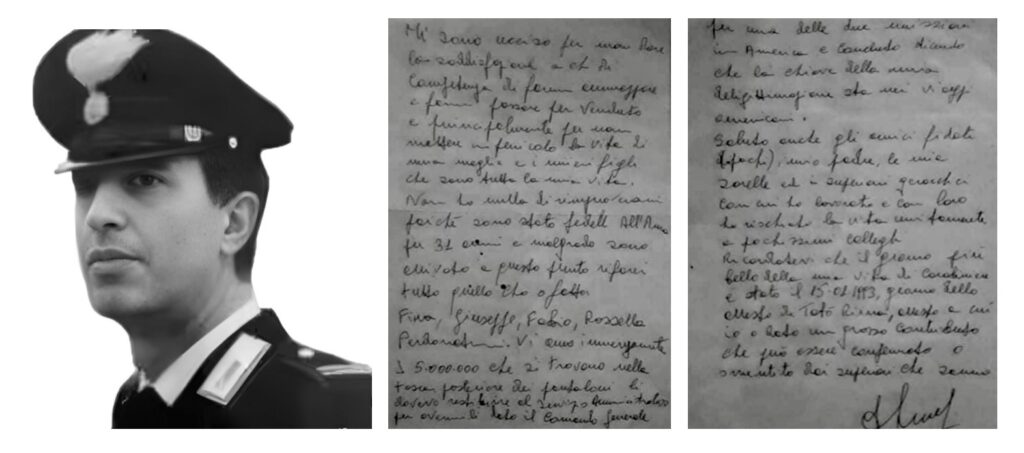 Mi sono ucciso per non dare
la soddisfazione a chi di
competenza di farmi ammazzare
e farmi passare per venduto
e principalmente per non
mettere in pericolo la vita di
mia moglie e i miei figli
che sono tutta la mia vita.
Non ho nulla di rimproverarmi
poiché sono stato fedele All'Arma
per 31 anni e malgrado sono
arrivato a questo punto rifarei
tutto quello che o fatto
Fina, Giuseppe, Fabio, Rossella
Perdonatemi. Vi amo immensamente
5.000.000 che si trovano nella
tasca posteriore dei pantaloni li
dovevo restituire al servizio Amministrativo
per avermeli dato il Comando Generale
per una delle due missioni
in America e Concludo dicendo
che la chiave della mia
delegittimazione sta nei viaggi
americani.
Saluto anche gli amici fidati
(pochi), mio padre, le mie
sorelle ed i superiori gerarchici
con cui ho lavorato e con loro
ho rischiato la vita unitamente
a pochissimi collegh
Ricordatevi che il giorno più
bello della mia vita di Carabiniere
è stato il 15-01-1993, giorno dello
arresto di Totò Riina, arresto a cui
io o dato un grosso contributo
che può essere confermato o
smentito dai superiori che sanno